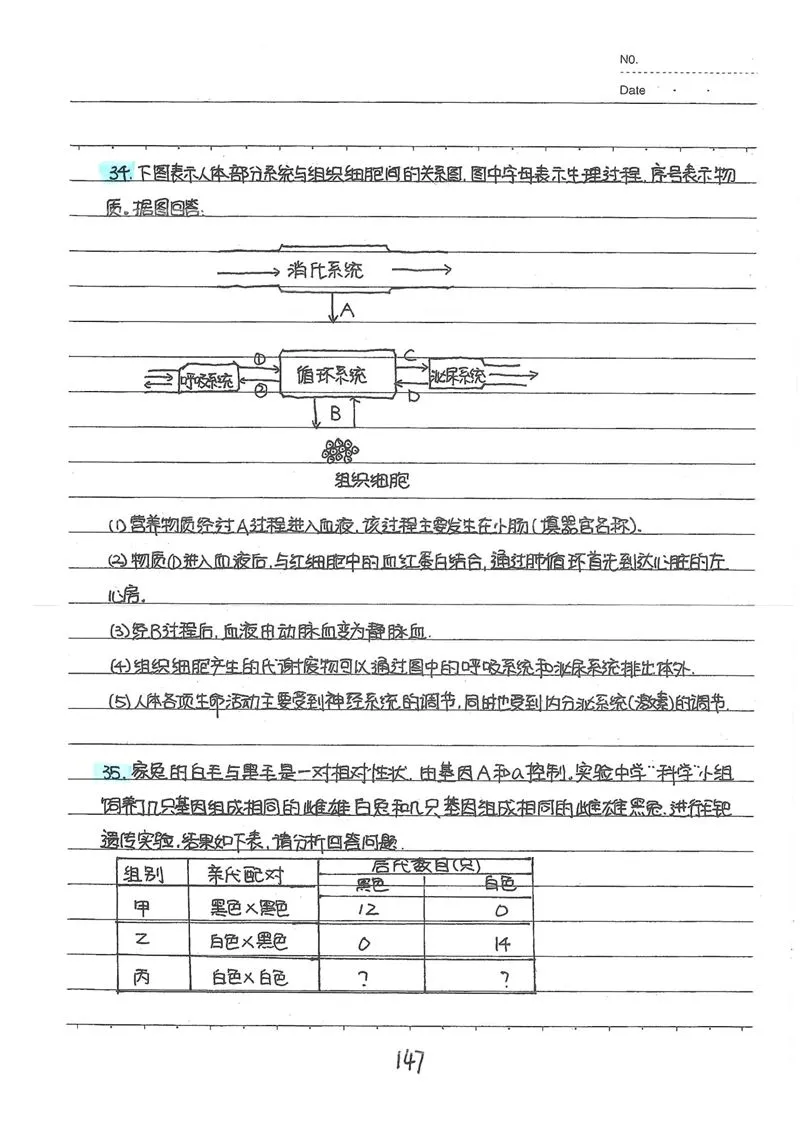 NO.
Date
34.下图表示人体部分系统与组织细胞间的关系图,图中字母表示生理过程,序号表示物
质。据图回答:
消化系统
A
① 循环系统 C
呼吸系统 泌尿系统
② D
B
组织细胞
(1)营养物质经过A过程进入血液,该过程主要发生在小肠(填器官名称)。
(2)物质①进入血液后,与红细胞中的血红蛋白结合,通过肺循环首先到达心脏的左
心房。
(3)经B过程后,血液由动脉血变为静脉血.
(4)组织细胞产生的代谢废物可以通过图中的呼吸系统和泌尿系统排出体外.
(5)人体各项生命活动主要受到神经系统的调节,同时也受到内分泌系统(激素)的调节.
35.家兔的白毛与黑毛是一对相对性状.由基因A和a控制,实验中学"科学"小组
饲养了几只基因组成相同的雌雄白兔和几只基因组成相同的雌雄黑兔,进行
遗传实验,结果如下表,请分析回答问题.
组别 亲代配对 后代数目(只)
黑色 白色
甲 黑色×黑色 12 0
乙 白色×黑色 0 14
丙 白色×白色 ? ?
147